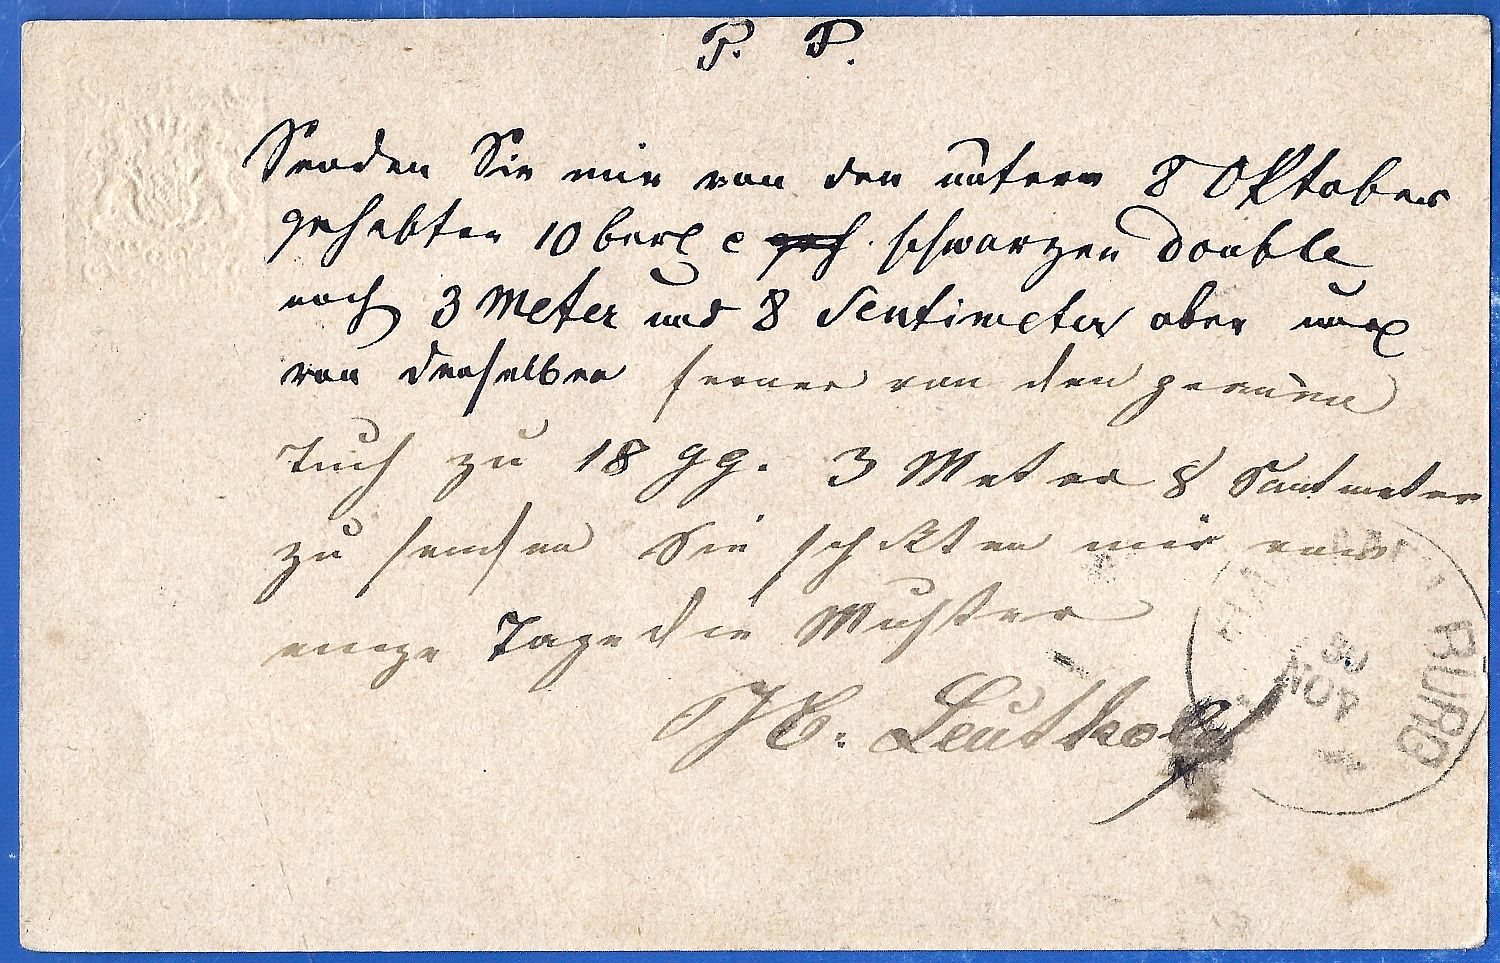 P. P.
Senden Sie mir von den unterm 8 Oktober
gehabten 10 schwarzen double
noch 3 Meter und 8 Sentimeter aber nur
von denselben ferner von den
Tuch zu 18 gg. 3 Meter 8 Santmeter
zu senden Sie schikten mir vor
einge Tage die Muster
30
NOV
BURG